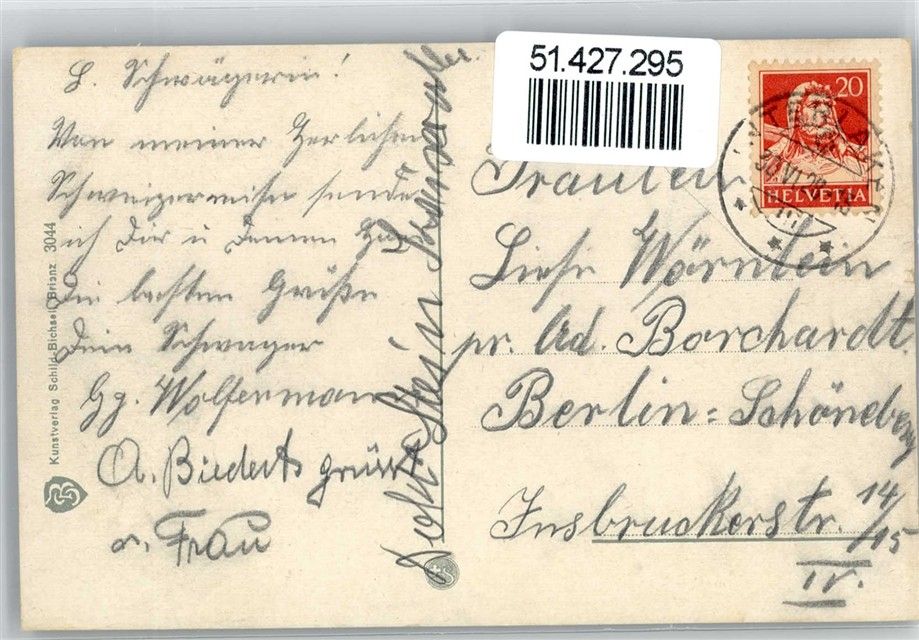 L. Schwägerin!
Von meiner herlichen
Schweizerreise sende
ich Dir u Deinen
die besten Grüße
Dein Schwager
Gg. Wolfermann
A. Biederts grüsst
u. Frau
Kunstverlag Schild-Bichsel, Brienz 3044
51.427.295
20
HELVETIA
Fräulein
Liese Wörnlein
pr. Ad. Borchardt.
Berlin=Schöneberg
Insbruckerstr. 14/15
IV.